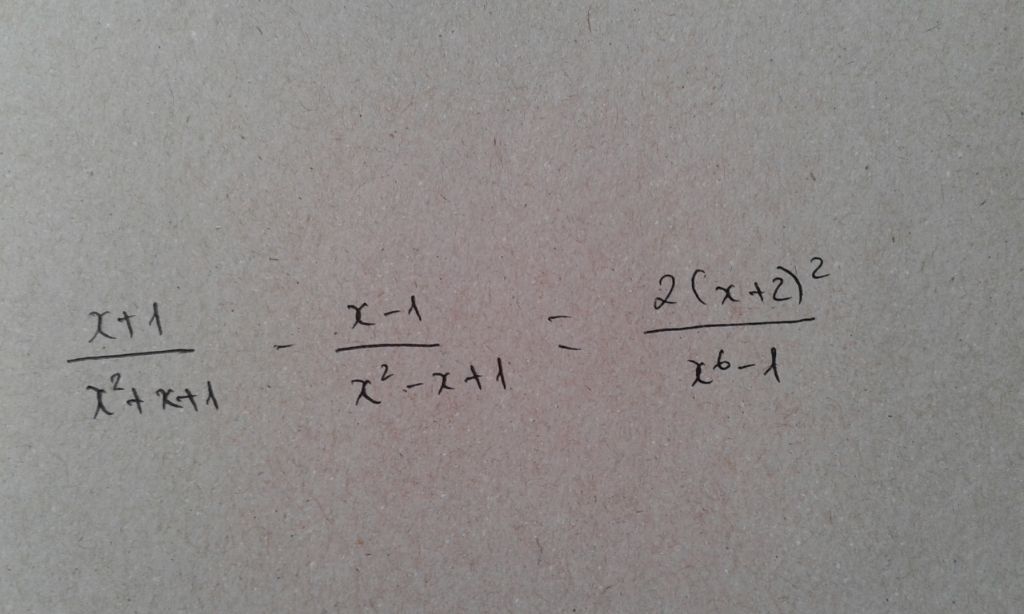 x+1/x²+x+1 - x-1/x²-x+1 = 2(x+2)²/x⁶-1